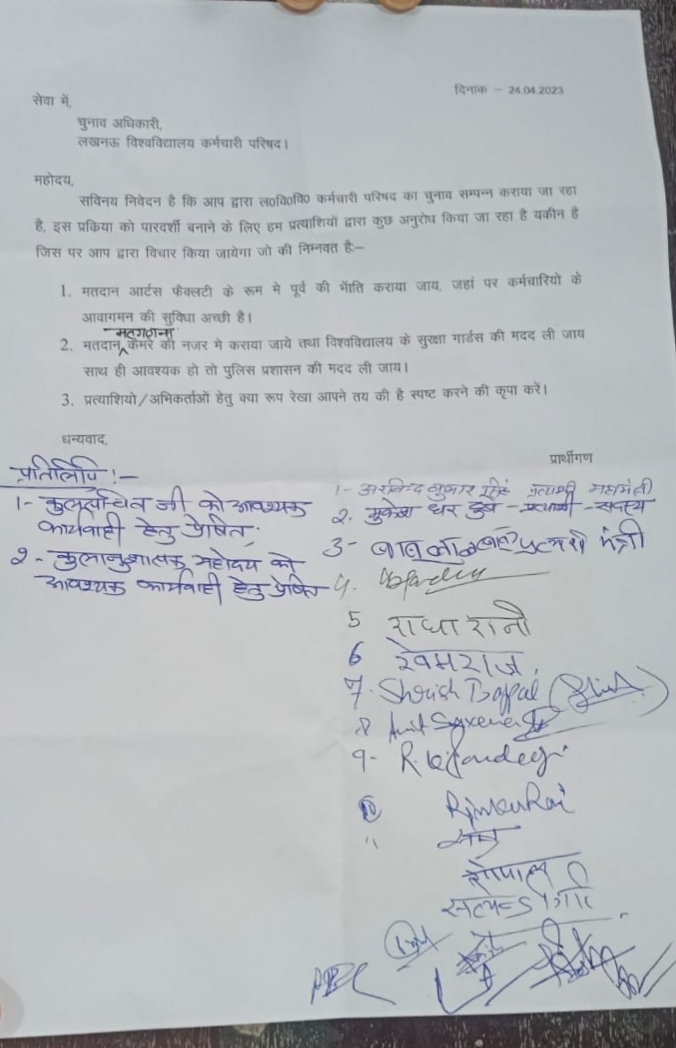 दिनांक – 24.04.2023
सेवा में,
चुनाव अधिकारी,
लखनऊ विश्वविद्यालय कर्मचारी परिषद।
महोदय,
सविनय निवेदन है कि आप द्वारा ल0वि0वि0 कर्मचारी परिषद का चुनाव सम्पन्न कराया जा रहा
है, इस प्रकिया को पारदर्शी बनाने के लिए हम प्रत्याशियों द्वारा कुछ अनुरोध किया जा रहा है यकीन है
जिस पर आप द्वारा विचार किया जायेगा जो की निम्नवत है:–
1. मतदान आर्टस फैक्लटी के रूम मे पूर्व की भॅाति कराया जाय, जहां पर कर्मचारियो के
आवागमन की सुविधा अच्छी है।
मतगणना
2. मतदान कैमरे की नजर मे कराया जाये तथा विश्वविद्यालय के सुरक्षा गार्डस की मदद ली जाय
साथ ही आवश्यक हो तो पुलिस प्रशासन की मदद ली जाय।
3. प्रत्याशियो/अभिकर्ताओं हेतु क्या रूप रेखा आपने तय की है स्पष्ट करने की कृपा करें।
धन्यवाद,
प्रार्थीगण
प्रतिलिपि :–
1- कुलसचिव जी को आवश्यक
कार्यवाही हेतु प्रेषित
2- कुलानुशासक महोदय को
आवश्यक कार्यवाही हेतु प्रेषित
1- अरविन्द कुमार सिंह प्रत्याशी महामंत्री
2. मुकेश धर दुबे – प्रत्याशी – सदस्य
3- मंत्री
4.
5 राधा रानी
6 खेमराज
7. Shirish Bajpai
8 Amit Saxena
9- R. K. Pandey
10 Rinku Rai
11
गोपाल